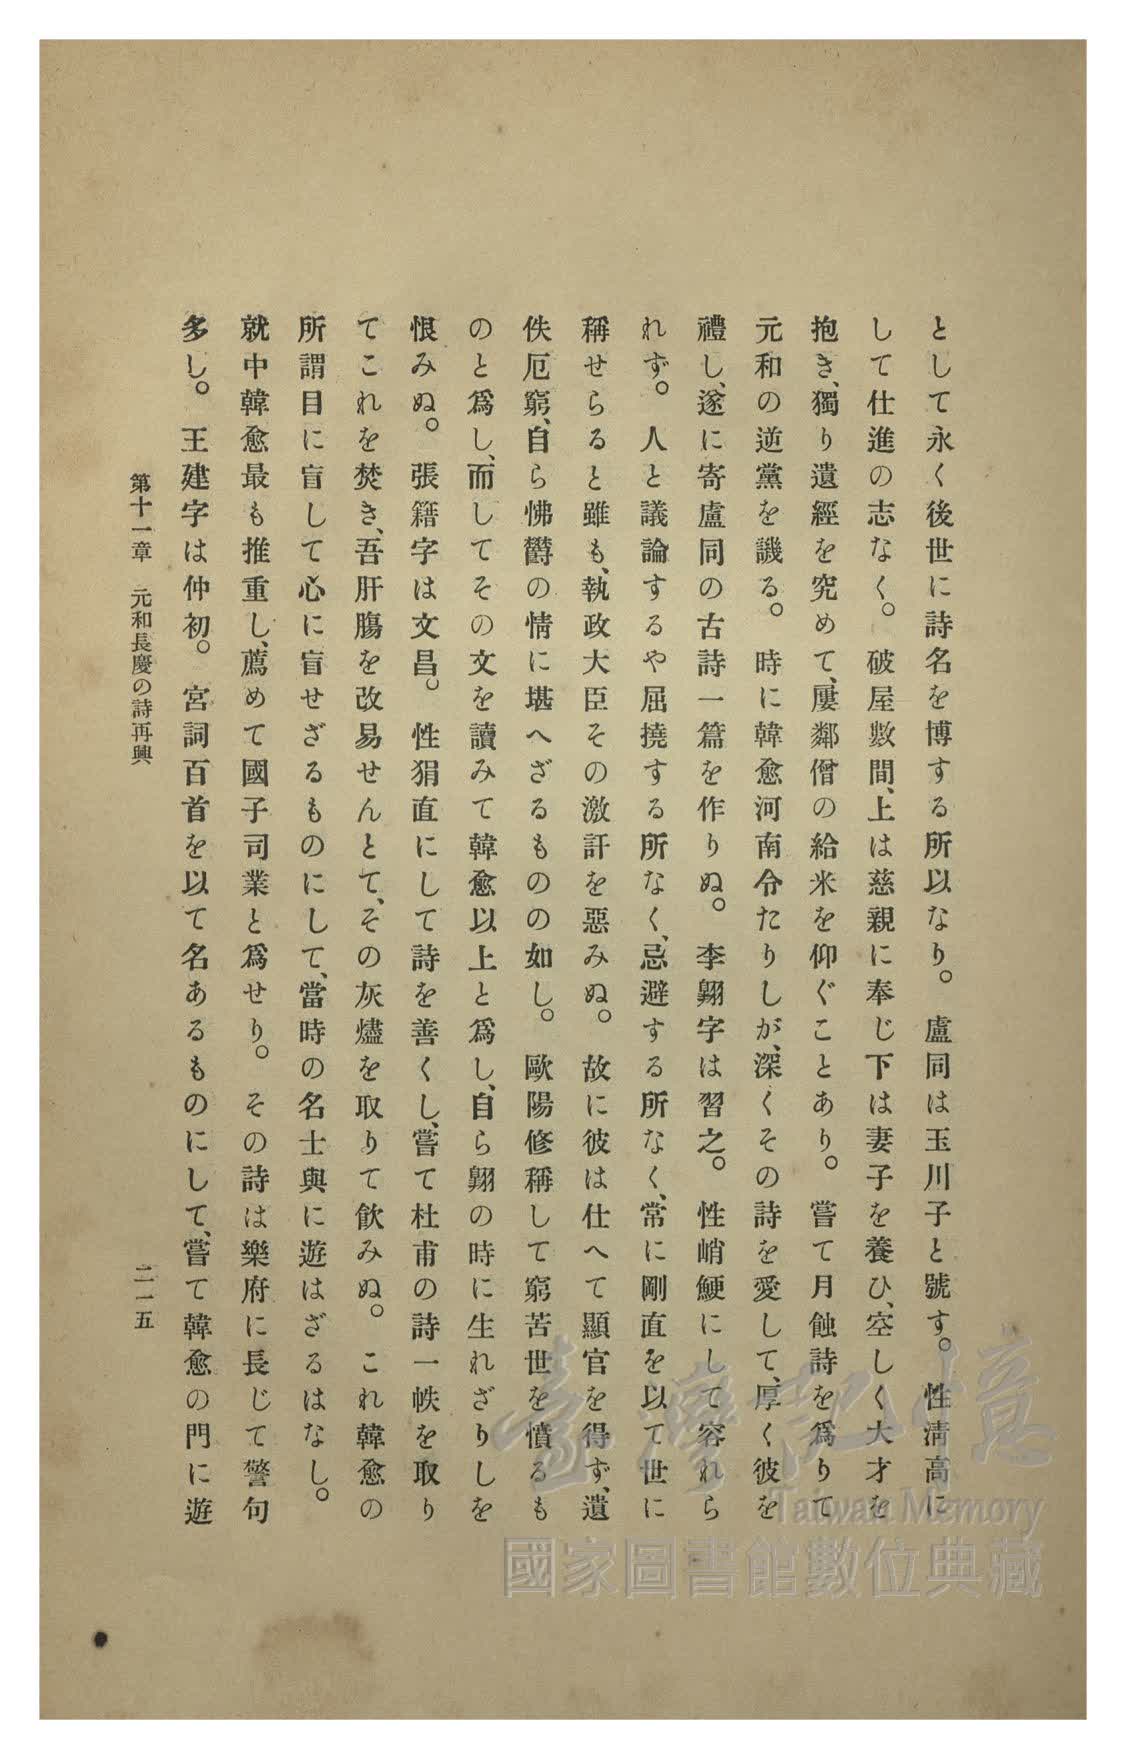 として永く後世に詩名を博する所以なり。盧同は玉川子と號す。性淸高に
して仕進の志なく。破屋數間、上は慈親に奉じ下は妻子を養ひ、空しく大才を
抱き、獨り遺經を究めて、屢鄰僧の給米を仰ぐことあり。嘗て月蝕詩を爲りて
元和の逆黨を譏る。時に韓愈河南令たりしが、深くその詩を愛して、厚く彼を
禮し、遂に寄盧同の古詩一篇を作りぬ。李翺字は習之。性峭鯁にして容れら
れず。人と議論するや屈撓する所なく、忌避する所なく、常に剛直を以て世に
稱せらると雖も、執政大臣その激訐を惡みぬ。故に彼は仕へて顯官を得ず、遺
佚厄窮、自ら怫欝の情に堪へざるものの如し。歐陽修稱して窮苦世を憤るも
のと爲し、而してその文を讀みて韓愈以上と爲し、自ら翺の時に生れざりしを
恨みぬ。張籍字は文昌。性狷直にして詩を善くし、嘗て杜甫の詩一帙を取り
てこれを焚き、吾肝膓を改易せんとて、その灰燼を取りて飲みぬ。これ韓愈の
所謂目に盲して心に盲せざるものにして、當時の名士與に遊はざるはなし。
就中韓愈最も推重し、薦めて國子司業と爲せり。その詩は樂府に長じて警句
多し。王建字は仲初。宮詞百首を以て名あるものにして、嘗て韓愈の門に遊
第十一章 元和長慶の詩再興
二一五
臺灣記憶
Taiwan Memory
國家圖書館數位典藏